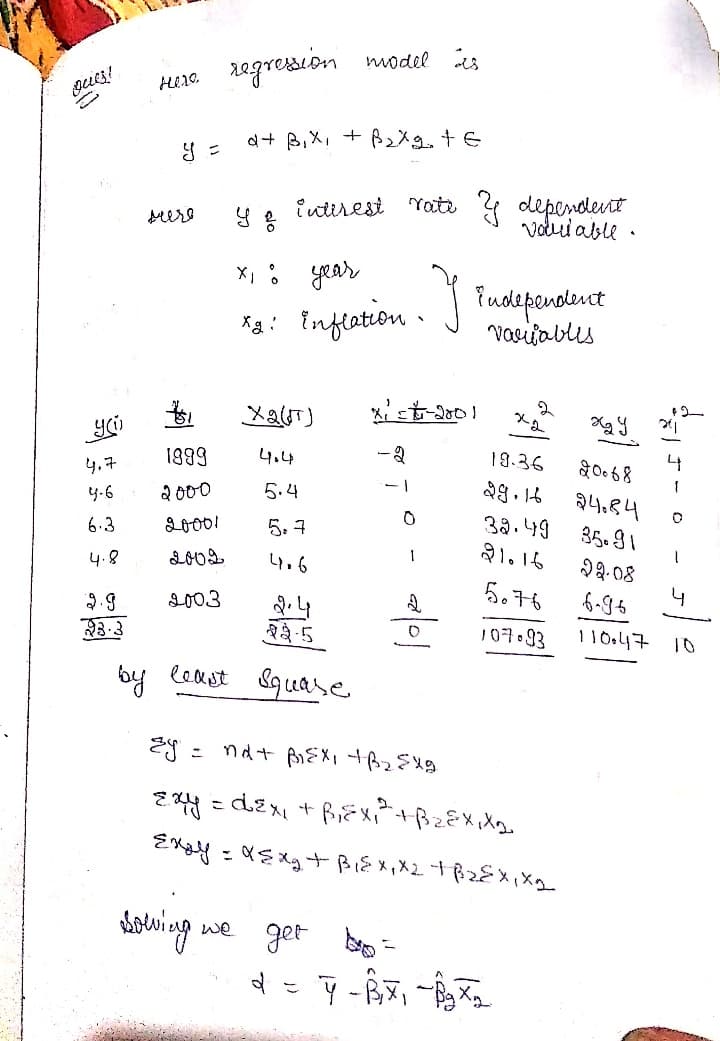 ques!
Here regression model is
y = α + β₁X₁ + β₂X₂ + ε
Here y : interest rate } dependent variable.
x₁ : year
x₂ : inflation. } independent variables
y(i) t₁ X₂(π) x₁' = t-2001 x₂² x₂y x₁'²
4.7 1999 4.4 -2 19.36 20.68 4
4.6 2000 5.4 -1 29.16 24.84 1
6.3 20001 5.7 0 32.49 35.91 0
4.8 2002 4.6 1 21.16 22.08 1
2.9 2003 2.4 2 5.76 6.96 4
23.3 22.5 0 107.93 110.47 10
by least square
Σy = nα + β₁Σx₁ + β₂Σx₂
Σx₁y = αΣx₁ + β₁Σx₁² + β₂Σx₁x₂
Σx₂y = αΣx₂ + β₁Σx₁x₂ + β₂Σx₁x₂
solving we get =
α = ȳ - β̂₁x̄₁ - β̂₂x̄₂